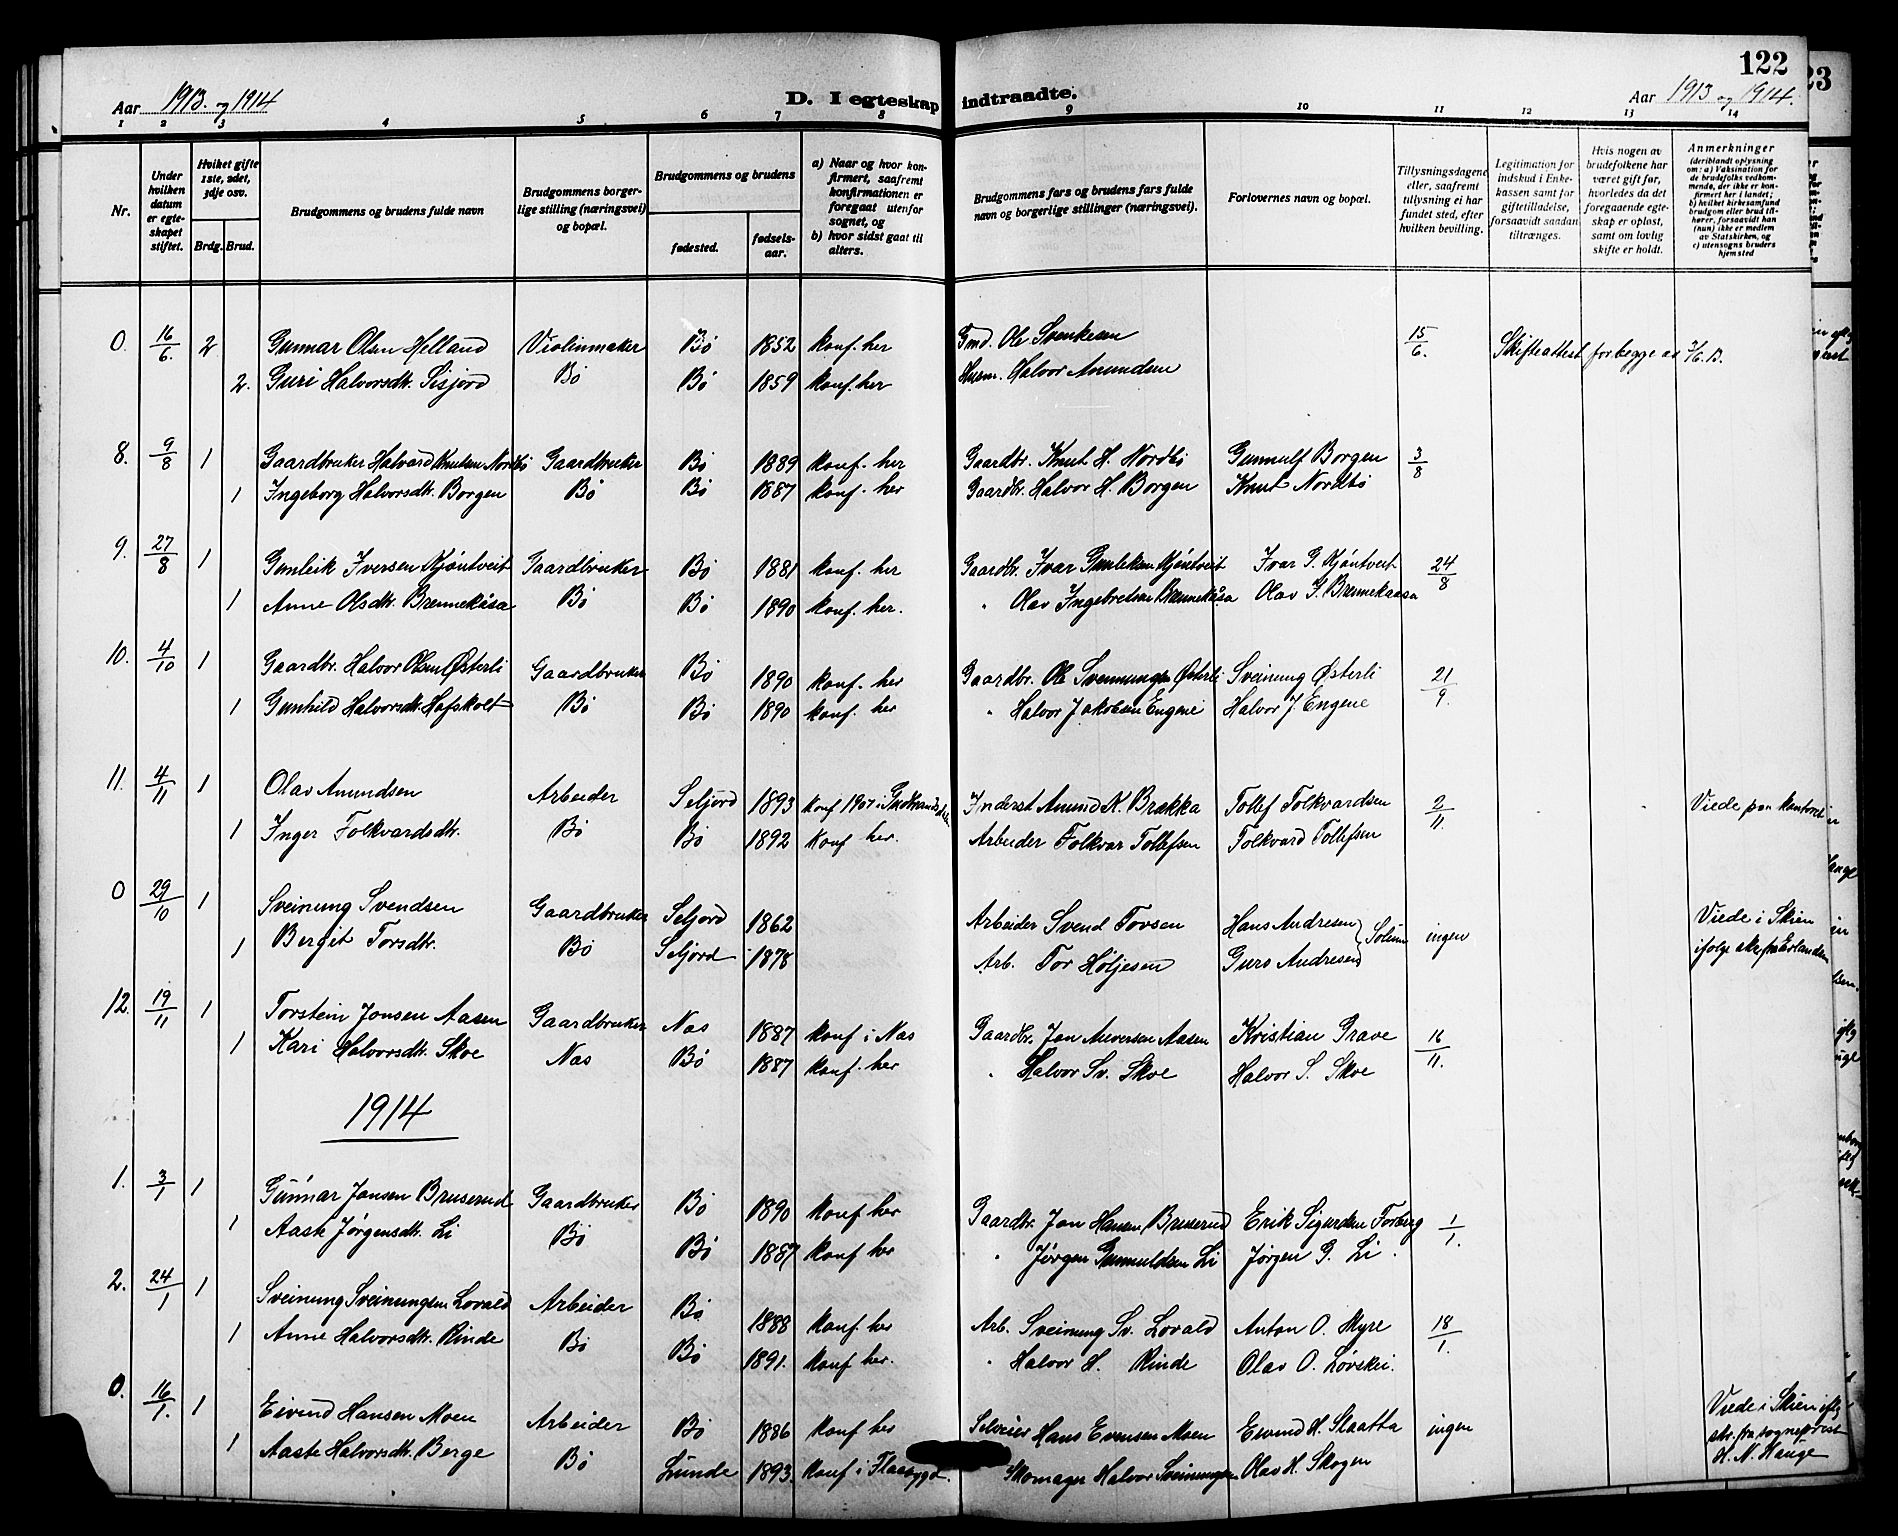 122
23
Aar 1913 og 1914
D. I egteskap indtraadte.
Aar 1913 og 1914.
1 2 3 4 5 6 7 8 9 10 11 12 13 14
Nr.
Under hvilken datum er egteskapet stiftet.
Hviket gifte 1ste, 2det, 3dje osv.
Brdg. Brud.
Brudgommens og brudens fulde navn
Brudgommens borgerlige stilling (næringsvei) og bopæl.
Brudgommens og brudens
fødested.
fødselsaar.
a) Naar og hvor konfirmert, saafremt konfirmationen er foregaat utenfor sognet, og
b) hvor sidst gaat til alters.
Brudgommens fars og brudens fars fulde navn og borgerlige stillinger (næringsvei).
Forlovernes navn og bopæl.
Tillysningsdagene eller, saafremt tillysning ei har fundet sted, efter hvilken bevilling.
Legitimation for indskud i Enkekassen samt for giftetilladelse, forsaavidt saadan tiltrænges.
Hvis nogen av brudefolkene har været gift før, hvorledes da det foregaaende egteskap er opløst, samt om lovlig skifte er holdt.
Anmerkninger (deriblandt oplysning om: a) Vaksination for de brudefolks vedkommende, der ikke er konfirmert her i landet; b) hvilket kirkesamfund brudgom eller brud tilhører, forsaavidt han (hun) ikke er medlem av Statskirken, og c) utensogns bruders hjemsted
0. 16/6 2 Gunnar Olsen Helland Violinmaker Bö 1852 konf. her Gmd. Ole Svenksen 15/6. Skifteattest for begge av
2. Guri Halvorsdtr. Sisjord Bö Bö 1859 konf. her Husm. Halvor Amundsen
8. 9/8 1 Gaardbruker Halvard Knutsen Nordbö Gaardbruker Bö 1889 konf. her Gaardbr. Knut H. Nordbö Gunnulf Borgen 3/8
1 Ingeborg Halvorsdtr. Borgen Bö Bö 1887 konf. her Gaardbr. Halvor H. Borgen Knut Nordbö
9. 27/8 1 Gunleik Iversen Kjöntveit Gaardbruker Bö 1881 konf. her Gaardbr. Ivar Gunleksen Kjöntveit Ivar G. Kjöntveit 24/8
1 Anne Olsdtr. Brennekåsa Bö Bö 1890 konf. her. " Olav Ingebretsen Brennekåsa Olav I. Brennekaasa
10. 4/10 1 Gaardbr. Halvor Olsen Østerli Gaardbruker Bö 1890 konf. her Gaardbr. Ole Svennungsen Østerli Sveinung Østerli 21/9.
1 Gunhild Halvorsdtr. Hafskolt Bö Bö 1890 konf. her " Halvor Jakobsen Engene Halvor J. Engene
11. 4/11 1 Olav Amundsen Arbeider Seljord 1893 konf 1907 i Gudbrandsdalen Inderst Amund K. Brækka Tollef Folkvardsen 2/11. Viede paa kontoret
1 Inger Folkvardsdtr. Bö Bö 1892 konf her. Arbeider Folkvar Tollefsen Folkvard Tollefsen
0 29/10 1 Sveinung Svendsen Gaardbruker Seljord 1862 Arbeider Svend Tovsen Hans Andresen Solum ingen Viede i Skien
1 Bergit Torsdtr. Bö Seljord 1878 Arb. Tor Höljesen Guro Andresen ifølge skr. fra Erlandsen
12. 19/11 1 Torstein Jonsen Aasen Gaardbruker Nas 1887 konf i Nas Gaardbr. Jon Aleversen Aasen Kristian Grave 16/11.
1 Kari Halvorsdtr. Skoe Nas Bö 1887 konf. her " Halvor Sv. Skoe Halvor S. Skoe
1914
1. 3/1 1 Gunnar Jonsen Bruserud Gaardbruker Bö 1890 konf her Gaardbr. Jon Hansen Bruserud Erik Sigurdsen Forberg 1/1.
1 Aaste Jörgensdtr. Li Bö Bö 1887 konf her " Jörgen Gunnuldsen Li Jørgen G. Li.
2. 24/1 1 Sveinung Sveinungsen Lovald Arbeider Bö 1888 konf her Arb. Sveinung Sv. Lovald Anton O. Myre 18/1.
1 Anne Halvorsdtr. Rinde Bö Bö 1891. konf her. " Halvor H. Rinde Olav O. Løvskei.
0. 16/1. 1 Eivind Hansen Moen Arbeider Bö 1886 konf her Selveier Hans Evensen Moen Eivind H. Slaatta ingen Viede i Skien iflg
1 Aaste Halvorsdtr. Berge Bö Lunde 1893. konf i Flaabygd. Skomager Halvor Sveinungsen Olav H. Skogen skr. fra sogneprest
H. N. Hauge